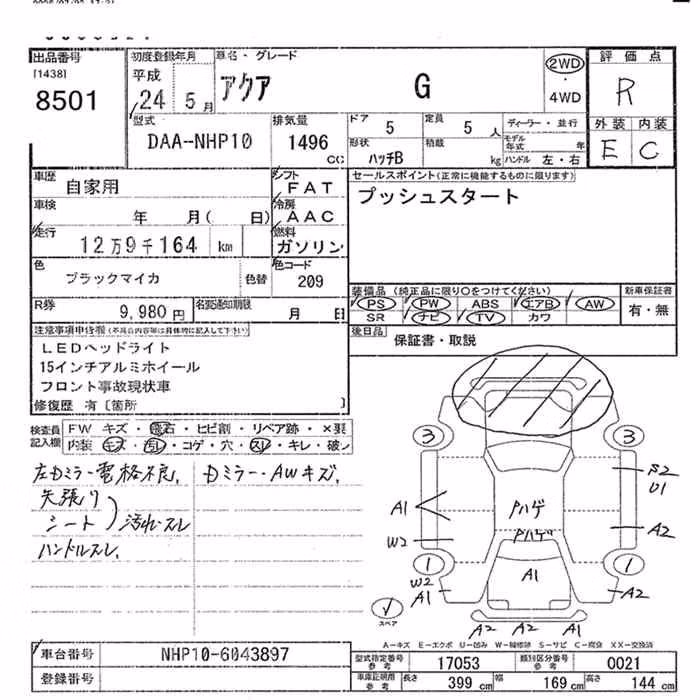 出品番号
[1438]
8501
初度登録年月
平成
24 5月
車名・グレード
アクア G
2WD
・
4WD
評価点
R
外装 内装
E C
型式
DAA-NHP10
排気量
1496
CC
ドア 5
定員 5 人
形状 ハッチB
積載 kg
ディーラー・並行
モデル年式 年
ハンドル 左・右
車歴 自家用
シフト
FAT
車検 年 月( 日)
冷房
AAC
走行 12万9千164 km
燃料
ガソリン
色 ブラックマイカ 色替
色コード
209
R券 9,980円
名変通知期限 月 日
セールスポイント(正常に機能するものに限ります)
プッシュスタート
装備品 (純正品に限り○をつけてください)
PS PW ABS エアB AW
SR ナビ TV カワ
新車保証書
有・無
後日品 保証書・取説
注意事項申告欄(不具合内容等は具体的に記入して下さい)
LEDヘッドライト
15インチアルミホイール
フロント事故現状車
修復歴 有[箇所 ]
検査員記入欄
FW キズ・飛石・ヒビ割・リペア跡・×要
内装 キズ・汚レ・コゲ・穴・スレ・キレ・破レ
左Dミラー電格不良、Dミラー・AWキズ、
天張り
シート 汚れ・スレ
ハンドルスレ、
3 3
S2
U1
A1
Pハゲ
Pハゲ
A2
W2
1 1
A1
W2
A1
A2
スペア
A2 A2 A1
A-キズ E-エクボ U-凹み W-補修跡 S-サビ C-腐食 XX-交換済
車台番号 NHP10-6043897
登録番号
型式指定番号参考 17053
類別区分番号参考 0021
車庫証明用参考 長さ 399 cm 幅 169 cm 高さ 144 cm